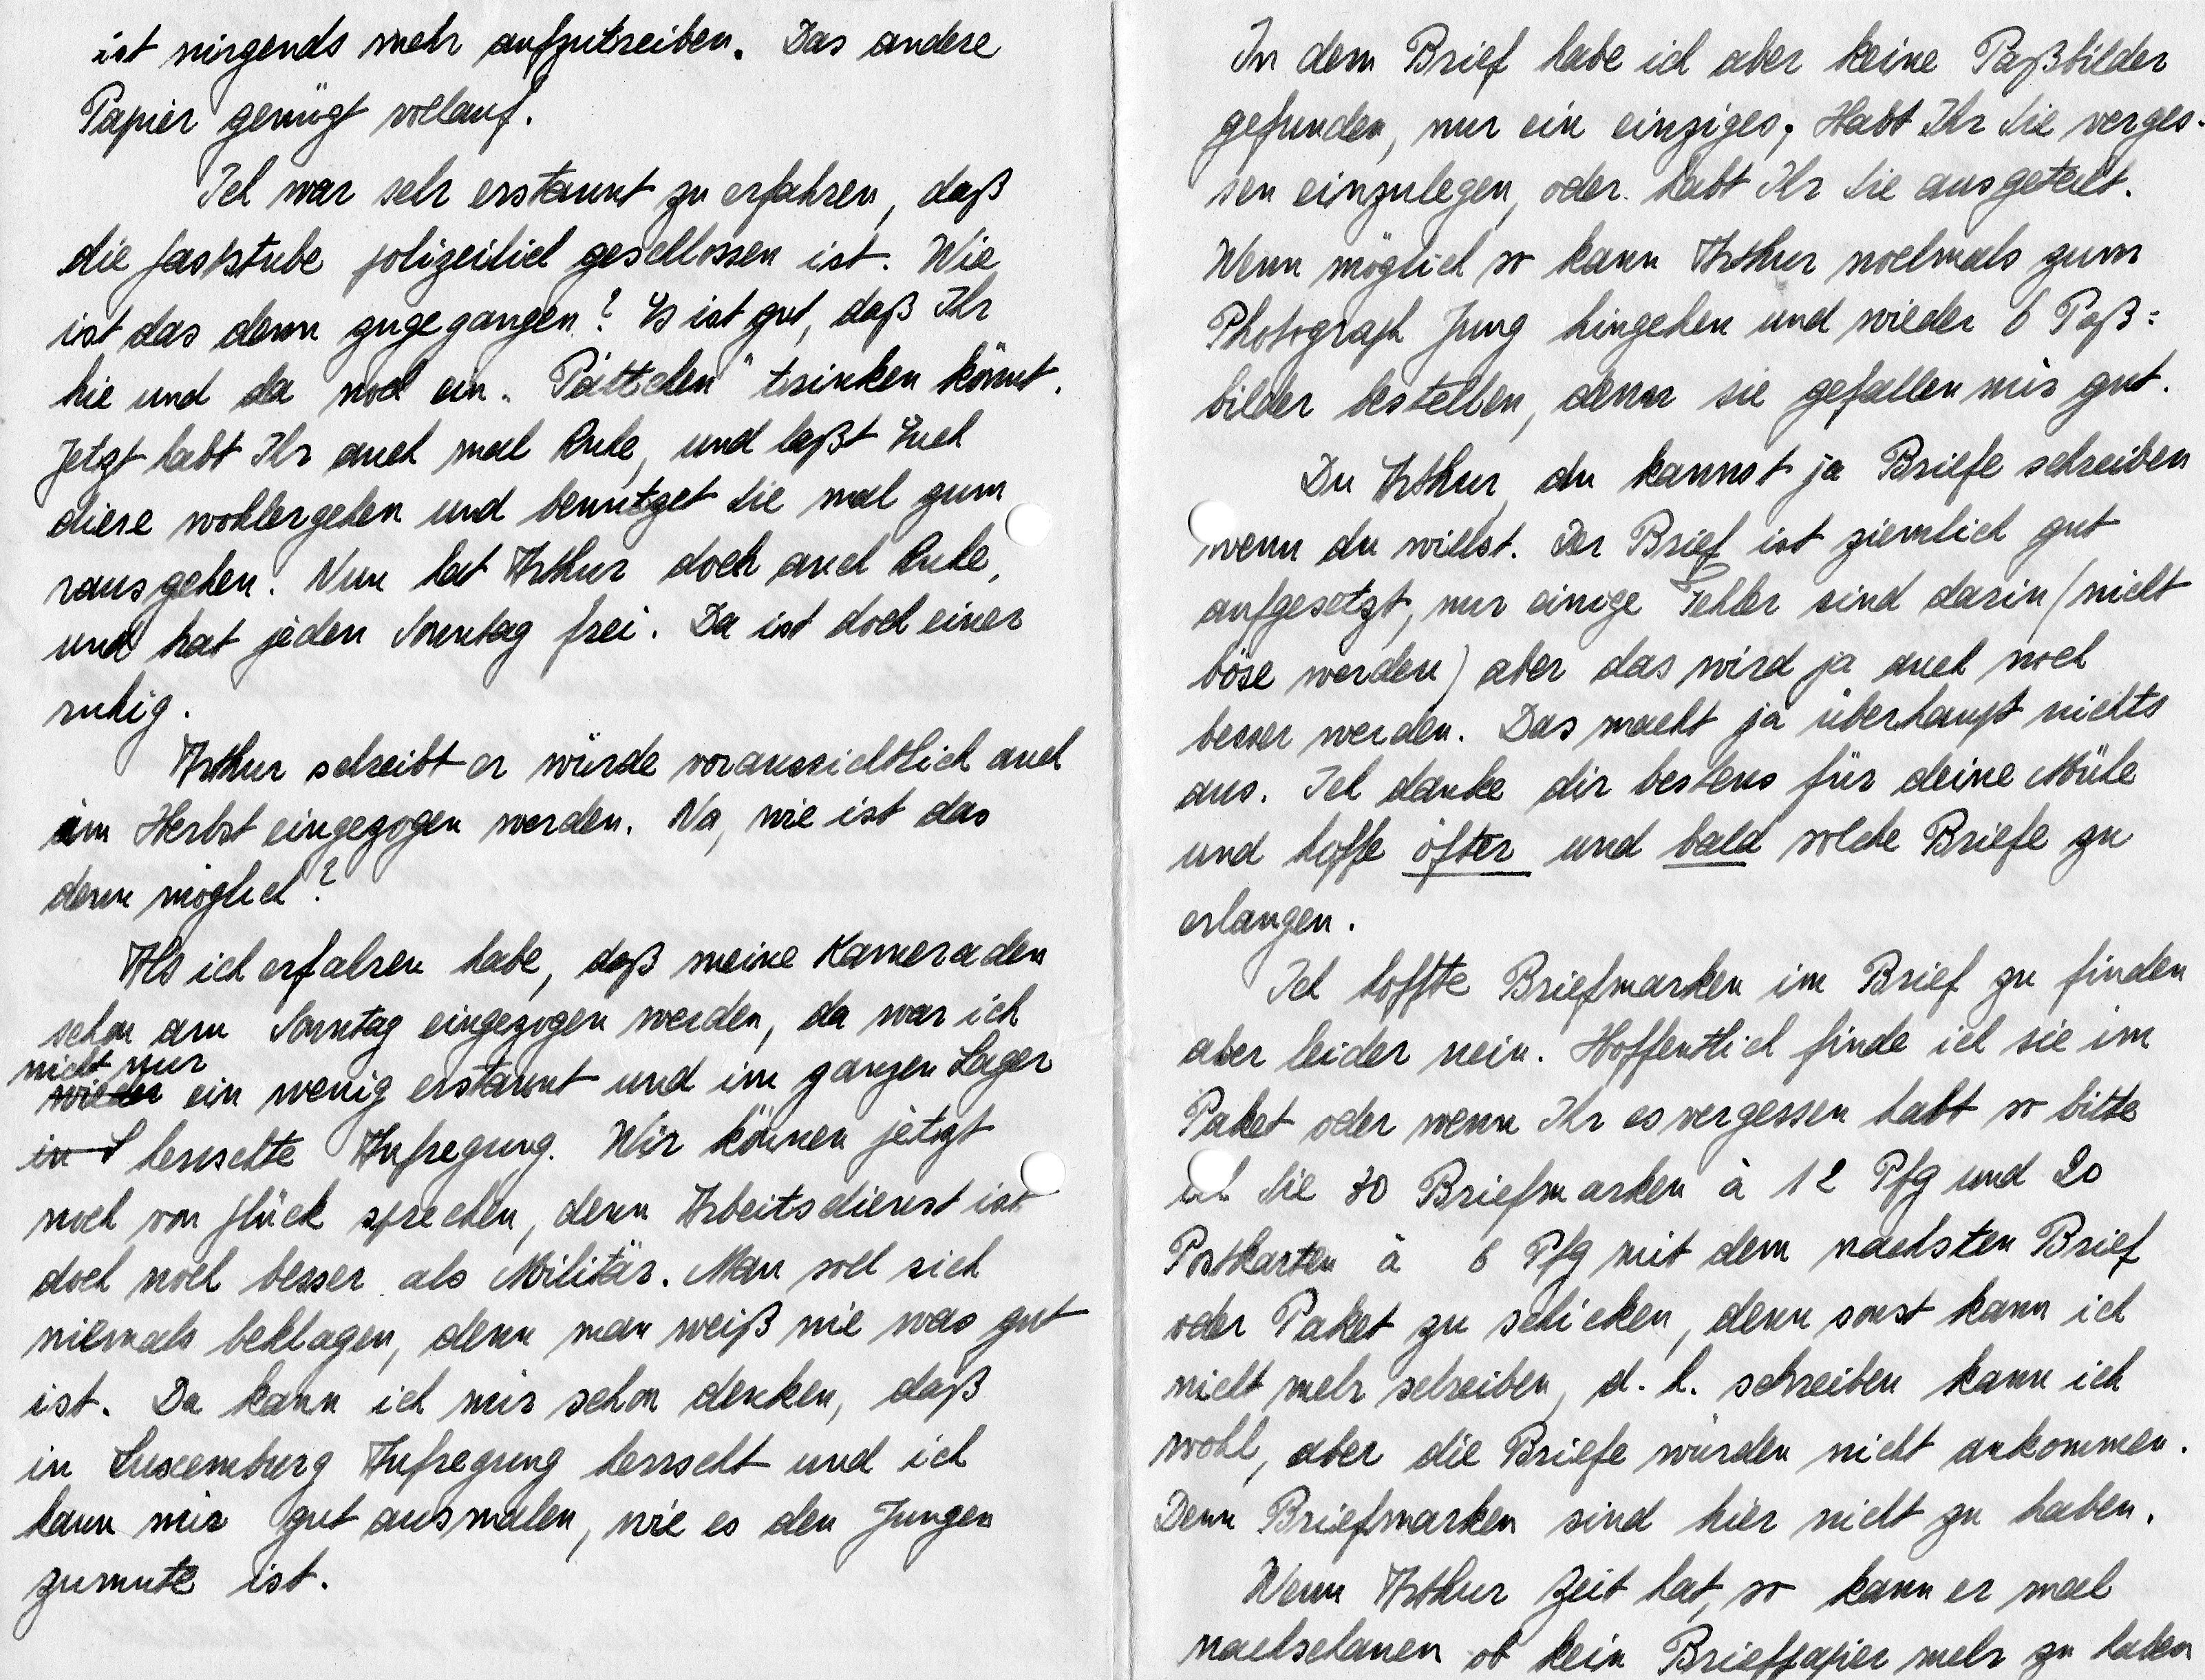 ist nirgends mehr aufzutreiben. Das andere
Papier genügt vollauf.
Ich war sehr erstaunt zu erfahren, daß
die Gaststube polizeilich geschlossen ist. Wie
ist das denn zugegangen? Es ist gut, daß Ihr
hie und da noch ein "Pättchen" trinken könnt.
Jetzt habt Ihr auch mal Ruhe, und laßt Euch
diese wohlergehen und benutzet sie mal zum
rausgehen. Nun hat Arthur doch auch Ruhe,
und hat jeden Sonntag frei. Da ist doch einer
ruhig.
Arthur schreibt er würde voraussichtlich auch
im Herbst eingezogen werden. Na, wie ist das
denn möglich?
Als ich erfahren habe, daß meine Kameraden
schon am Sonntag eingezogen werden, da war ich
nicht nur
wieder ein wenig erstaunt und im ganzen Lager
in L herrschte Aufregung. Wir können jetzt
noch von Glück sprechen, denn Arbeitsdienst ist
doch noch besser als Militär. Man soll sich
niemals beklagen, denn man weiß nie was gut
ist. Da kann ich mir schon denken, daß
in Luxemburg Aufregung herrscht und ich
kann mir gut ausmalen, wie es den Jungen
zumute ist.
In dem Brief habe ich aber keine Paßbilder
gefunden, nur ein einziges, Habt Ihr sie verges-
sen einzulegen, oder habt Ihr sie ausgeteilt.
Wenn möglich so kann Arthur nochmals zum
Photograph Jung hingehen und wieder 6 Paß=
bilder bestellen, denn sie gefallen mir gut.
Du Arthur, du kannst ja Briefe schreiben
wenn du willst. Der Brief ist ziemlich gut
aufgesetzt, nur einige Fehler sind darin (nicht
böse werden) aber das wird ja auch noch
besser werden. Das macht ja überhaupt nichts
aus. Ich danke dir bestens für deine Mühe
und hoffe öfter und bald solche Briefe zu
erlangen.
Ich hoffte Briefmarken im Brief zu finden
aber leider nein. Hoffentlich finde ich sie im
Paket oder wenn Ihr es vergessen habt so bitte
ich die 30 Briefmarken à 12 Pfg und 20
Postkarten à 6 Pfg mit dem nachsten Brief
oder Paket zu schicken, denn sonst kann ich
nicht mehr schreiben, d. h. schreiben kann ich
wohl, aber die Briefe würden nicht ankommen.
Denn Briefmarken sind hier nicht zu haben.
Wenn Arthur Zeit hat, so kann er mal
nachschauen ob kein Briefpapier mehr zu haben